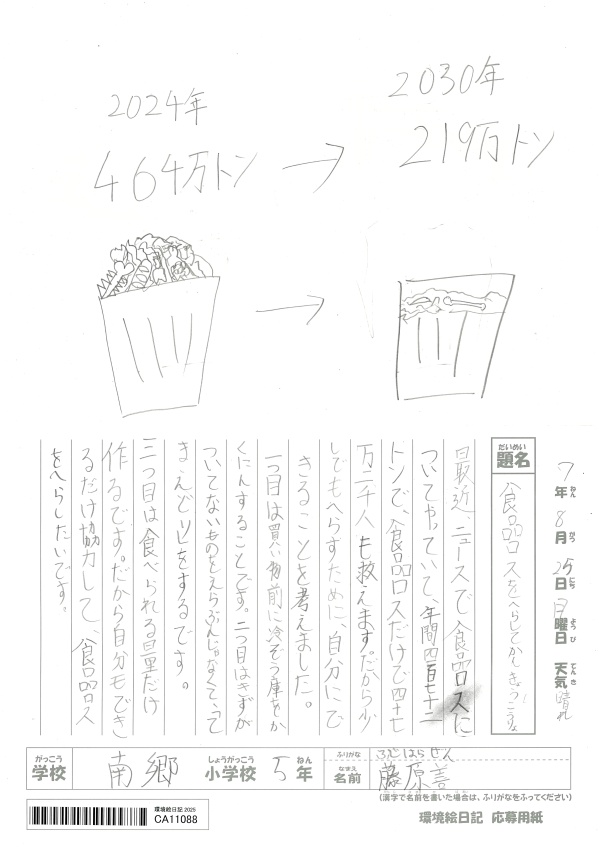 2024年
464万トン
→
2030年
219万トン
→
7年 8月 25日 月曜日 天気 晴れ
ねん がつ にち ようび てんき
だいめい
題名
食品ロスをへらして
最近、ニュースで食品ロスに
ついてやっていて、年間四百七十二
トンで、食品ロスだけで四十七
万二千人も救えます。だから少
しでもへらすために、自分にで
きることを考えました。
一つ目は買い物前に冷ぞう庫をか
くにんすることです。二つ目はきずが
ついてないものをえらぶんじゃなくて、て
まえどりをするです。
三つ目は食べられる量だけ
作るです。だから自分もでき
るだけ協力して、食品ロス
をへらしたいです。
がっこう
学校
南郷
しょうがっこう
小学校
5
ねん
年
ふりがな
ふじはらぜん
なまえ
名前
藤原善
(漢字で名前を書いた場合は、ふりがなをふってください)
環境絵日記 2025
CA11088
環境絵日記 応募用紙